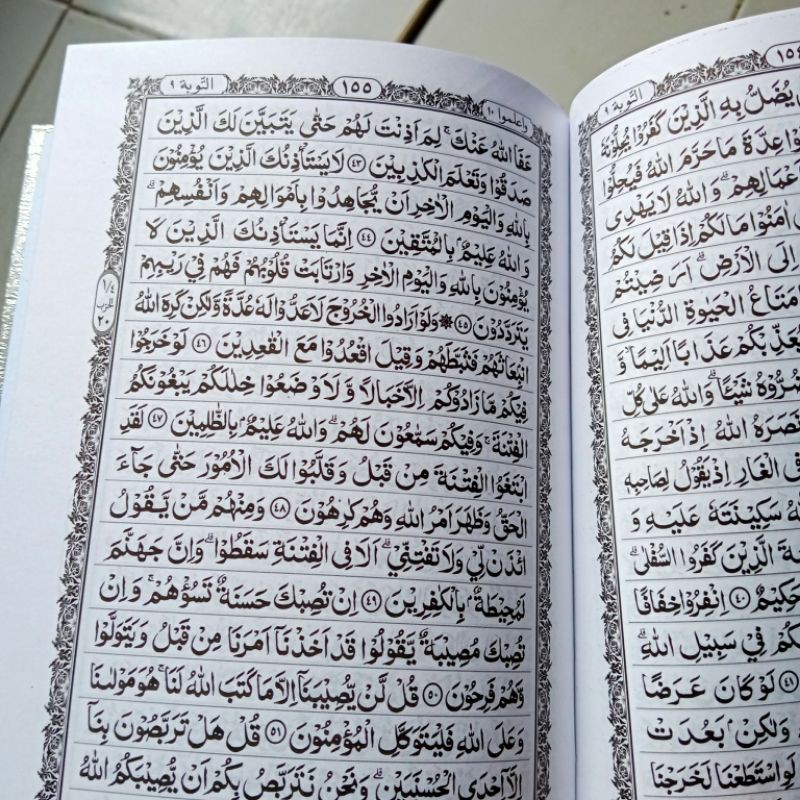 ١٥٤
التَّوْبَة ٩
يُضَلُّ بِهِ الَّذِيْنَ كَفَرُوْا يُحِلُّوْنَهٗ
عِدَّةَ مَا حَرَّمَ اللّٰهُ فَيُحِلُّوْا
اَعْمَالِهِمْ ۗ وَاللّٰهُ لَا يَهْدِى
اٰمَنُوْا مَا لَكُمْ اِذَا قِيْلَ لَكُمُ
اِلَى الْاَرْضِ ۗ اَرَضِيْتُمْ
مَتَاعُ الْحَيٰوةِ الدُّنْيَا فِى
يُعَذِّبْكُمْ عَذَابًا اَلِيْمًا ۙ وَّ
تَضُرُّوْهُ شَيْـًٔا ۗ وَاللّٰهُ عَلٰى كُلِّ
نَصَرَهُ اللّٰهُ اِذْ اَخْرَجَهُ
فِى الْغَارِ اِذْ يَقُوْلُ لِصَاحِبِهٖ
سَكِيْنَتَهٗ عَلَيْهِ وَ
الَّذِيْنَ كَفَرُوا السُّفْلٰى ۗ
حَكِيْمٌ ﴿٤٠﴾ اِنْفِرُوْا خِفَافًا
فِيْ سَبِيْلِ اللّٰهِ ۗ
﴿٤١﴾ لَوْ كَانَ عَرَضًا
وَّلٰكِنْۢ بَعُدَتْ
لَوِ اسْتَطَعْنَا لَخَرَجْنَا
واعلموا ١٠
١٥٥
التَّوْبَة ٩
عَفَا اللّٰهُ عَنْكَ ۚ لِمَ اَذِنْتَ لَهُمْ حَتّٰى يَتَبَيَّنَ لَكَ الَّذِيْنَ
صَدَقُوْا وَتَعْلَمَ الْكٰذِبِيْنَ ﴿٤٣﴾ لَا يَسْتَأْذِنُكَ الَّذِيْنَ يُؤْمِنُوْنَ
بِاللّٰهِ وَالْيَوْمِ الْاٰخِرِ اَنْ يُّجَاهِدُوْا بِاَمْوَالِهِمْ وَاَنْفُسِهِمْ ۗ
وَاللّٰهُ عَلِيْمٌۢ بِالْمُتَّقِيْنَ ﴿٤٤﴾ اِنَّمَا يَسْتَأْذِنُكَ الَّذِيْنَ لَا
يُؤْمِنُوْنَ بِاللّٰهِ وَالْيَوْمِ الْاٰخِرِ وَارْتَابَتْ قُلُوْبُهُمْ فَهُمْ فِيْ رَيْبِهِمْ
يَتَرَدَّدُوْنَ ﴿٤٥﴾ ۞ وَلَوْ اَرَادُوا الْخُرُوْجَ لَاَعَدُّوْا لَهٗ عُدَّةً وَّلٰكِنْ كَرِهَ اللّٰهُ
انْۢبِعَاثَهُمْ فَثَبَّطَهُمْ وَقِيْلَ اقْعُدُوْا مَعَ الْقٰعِدِيْنَ ﴿٤٦﴾ لَوْ خَرَجُوْا
فِيْكُمْ مَّا زَادُوْكُمْ اِلَّا خَبَالًا وَّلَاَوْضَعُوْا خِلٰلَكُمْ يَبْغُوْنَكُمُ
الْفِتْنَةَ ۚ وَفِيْكُمْ سَمّٰعُوْنَ لَهُمْ ۗ وَاللّٰهُ عَلِيْمٌۢ بِالظّٰلِمِيْنَ ﴿٤٧﴾ لَقَدِ
ابْتَغَوُا الْفِتْنَةَ مِنْ قَبْلُ وَقَلَّبُوْا لَكَ الْاُمُوْرَ حَتّٰى جَآءَ
الْحَقُّ وَظَهَرَ اَمْرُ اللّٰهِ وَهُمْ كٰرِهُوْنَ ﴿٤٨﴾ وَمِنْهُمْ مَّنْ يَّقُوْلُ
ائْذَنْ لِّيْ وَلَا تَفْتِنِّيْ ۗ اَلَا فِى الْفِتْنَةِ سَقَطُوْا ۗ وَاِنَّ جَهَنَّمَ
لَمُحِيْطَةٌۢ بِالْكٰفِرِيْنَ ﴿٤٩﴾ اِنْ تُصِبْكَ حَسَنَةٌ تَسُؤْهُمْ ۚ وَاِنْ
تُصِبْكَ مُصِيْبَةٌ يَّقُوْلُوْا قَدْ اَخَذْنَآ اَمْرَنَا مِنْ قَبْلُ وَيَتَوَلَّوْا
وَّهُمْ فَرِحُوْنَ ﴿٥٠﴾ قُلْ لَّنْ يُّصِيْبَنَآ اِلَّا مَا كَتَبَ اللّٰهُ لَنَا ۚ هُوَ مَوْلٰىنَا
وَعَلَى اللّٰهِ فَلْيَتَوَكَّلِ الْمُؤْمِنُوْنَ ﴿٥١﴾ قُلْ هَلْ تَرَبَّصُوْنَ بِنَآ
اِلَّآ اِحْدَى الْحُسْنَيَيْنِ ۗ وَنَحْنُ نَتَرَبَّصُ بِكُمْ اَنْ يُّصِيْبَكُمُ اللّٰهُ
١/٤
الحزب
٢٠